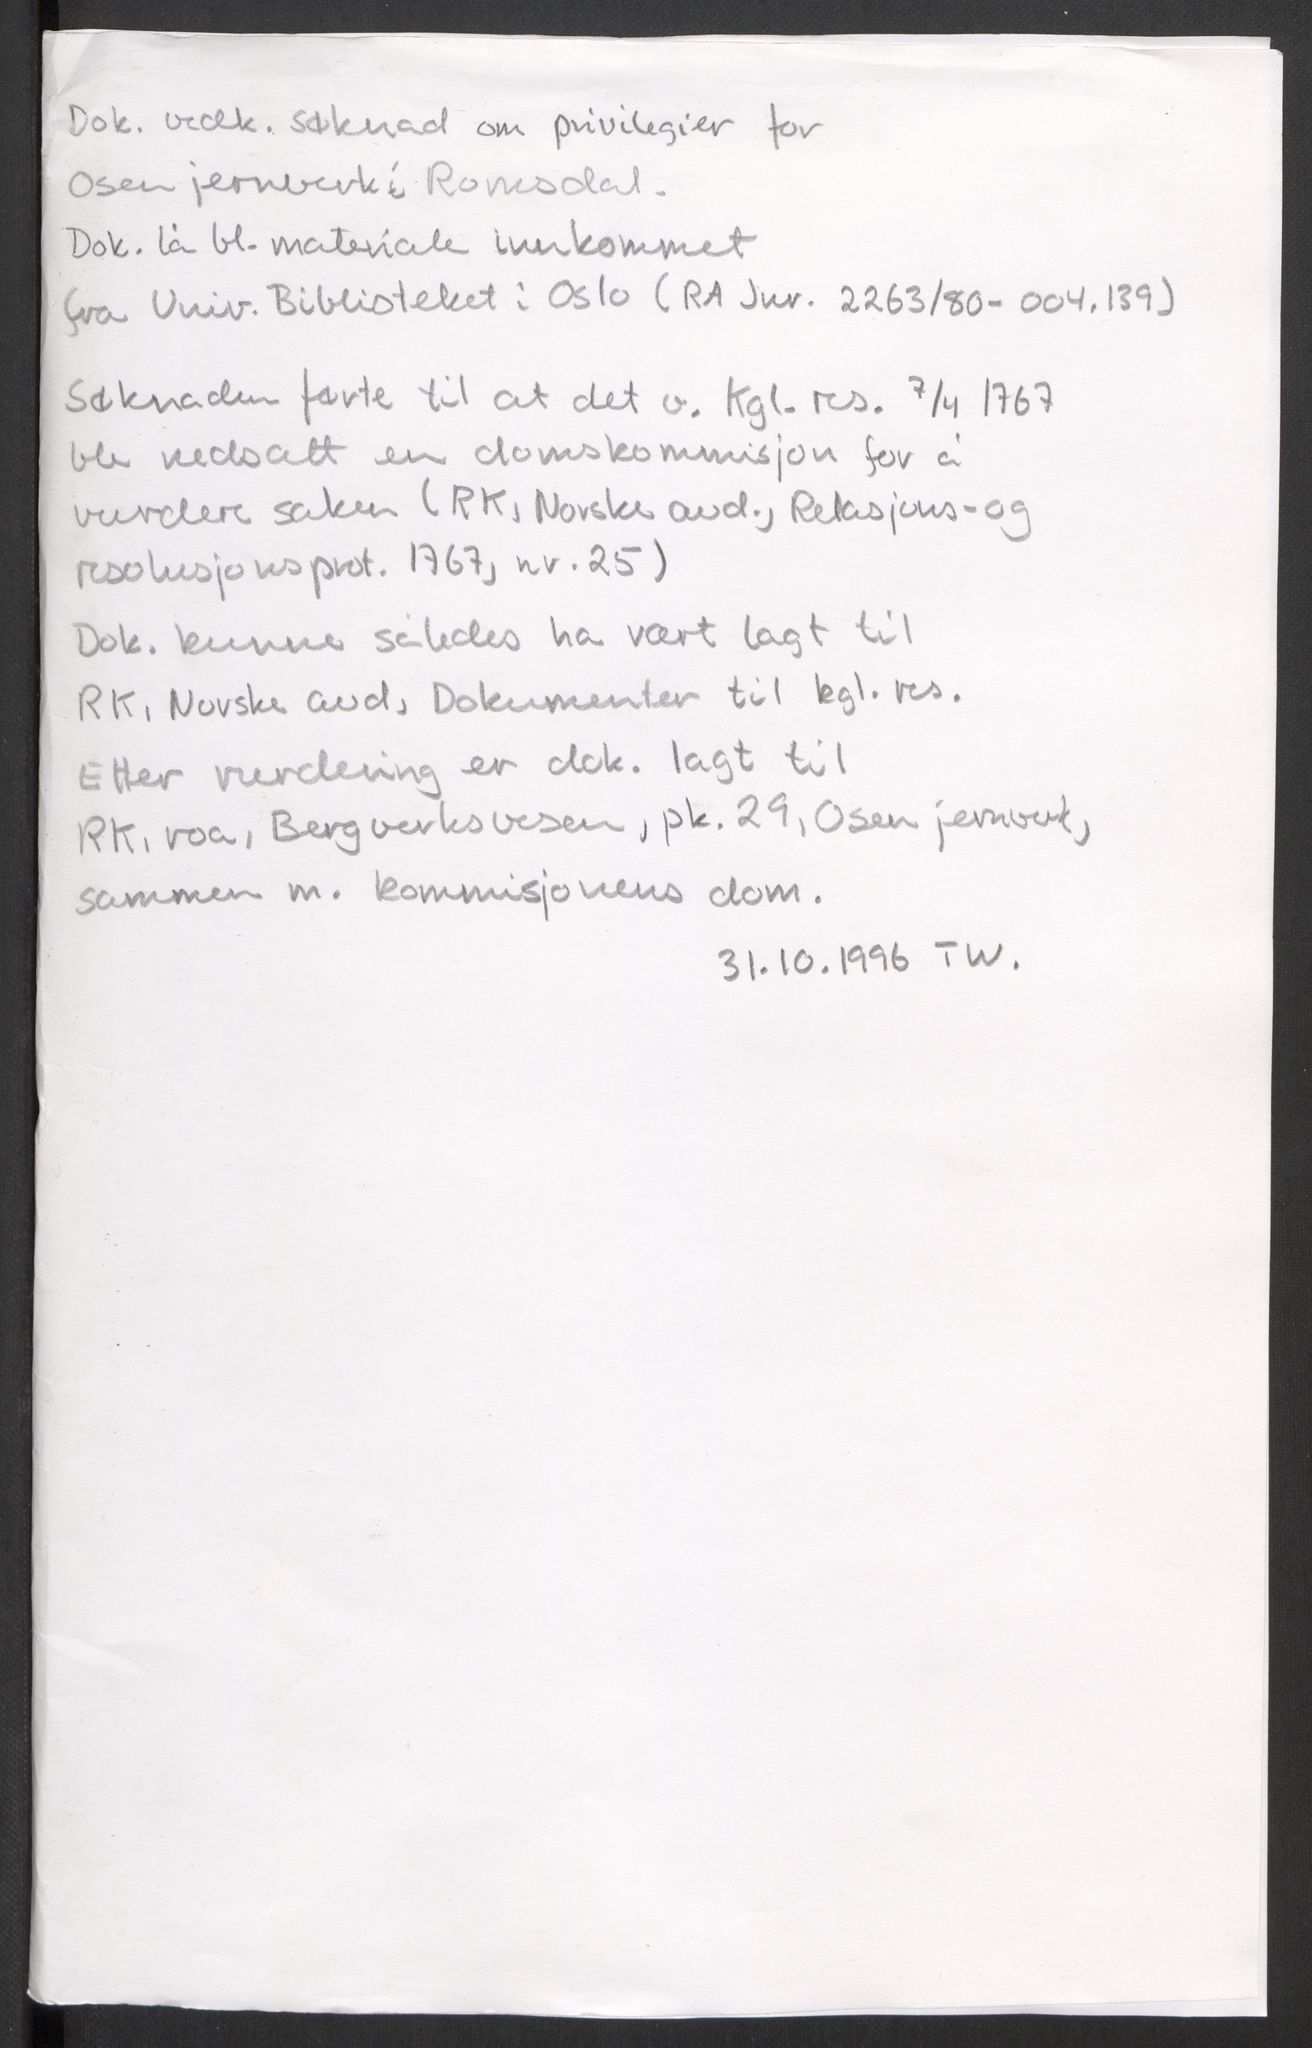 Dok. vedk. søknad om privilegier for
Osen jernverk i Romsdal.
Dok. lå bl. materiale innkommet
fra Univ. Biblioteket i Oslo (RA Jnr. 2263/80-004.139)
Søknaden førte til at det v. Kgl. res. 7/4 1767
ble nedsatt en domskommisjon for å
vurdere saken (RK, Norske avd., Relasjons- og
resolusjonsprot. 1767, nr. 25)
Dok. kunne således ha vært lagt til
RK, Norske avd, Dokumenter til kgl. res.
Etter vurdering er dok. lagt til
RK, roa, Bergverksvesen, pk. 29, Osen jernverk,
sammen m. kommisjonens dom.
31.10.1996 TW.